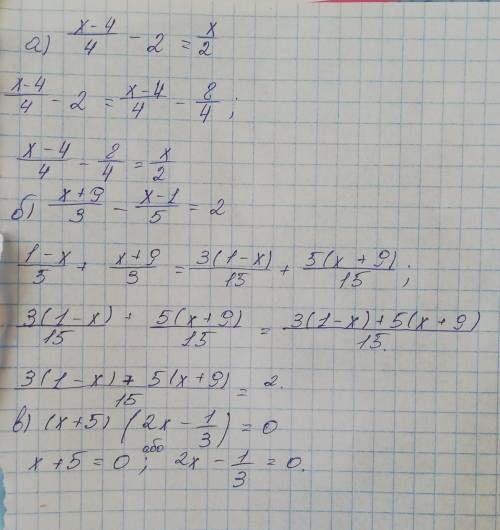 а) (x-4)/4 - 2 = x/2
(x-4)/4 - 2 = (x-4)/4 - 8/4 ;
(x-4)/4 - 8/4 = x/2
б) (x+9)/3 - (x-1)/5 = 2
(1-x)/5 + (x+9)/3 = 3(1-x)/15 + 5(x+9)/15 ;
3(1-x)/15 + 5(x+9)/15 = (3(1-x)+5(x+9))/15.
(3(1-x)+5(x+9))/15 = 2.
в) (x+5) (2x - 1/3) = 0
x+5=0 ; або 2x - 1/3 = 0.